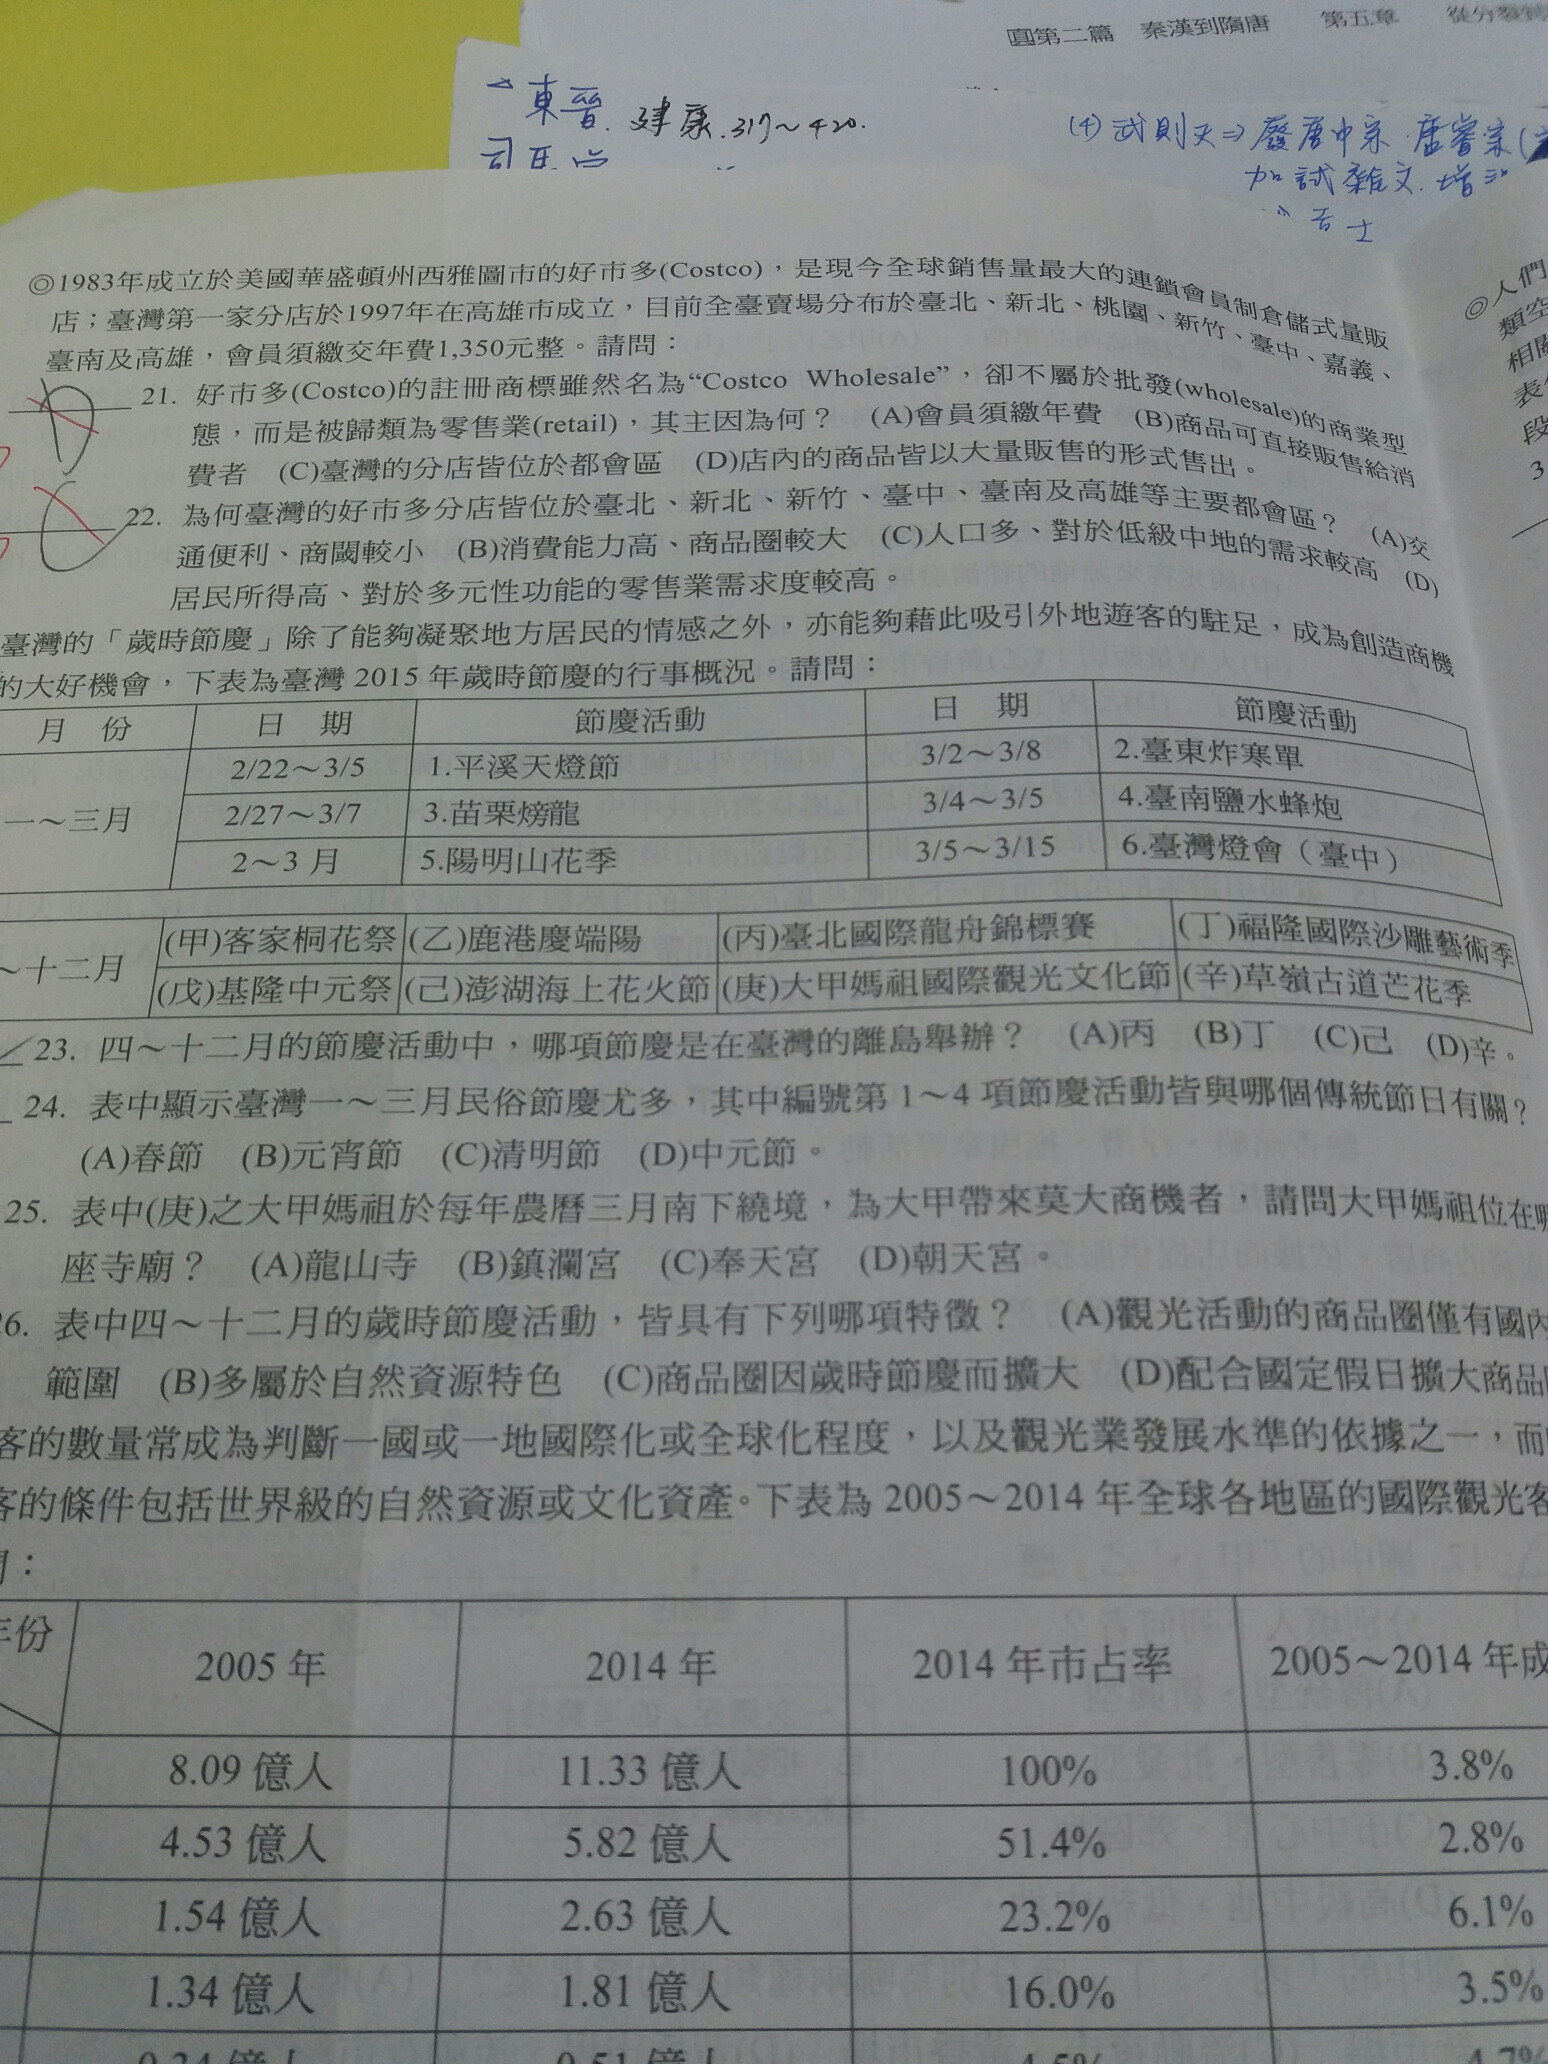 圓第二篇　秦漢到隋唐　第五章
東晉．建康．317～420．
(4) 武則天⇒廢唐中宗．唐睿宗(
加試雜文．增
◎1983年成立於美國華盛頓州西雅圖市的好市多(Costco)，是現今全球銷售量最大的連鎖會員制倉儲式量販
店；臺灣第一家分店於1997年在高雄市成立，目前全臺賣場分布於臺北、新北、桃園、新竹、臺中、嘉義、
臺南及高雄，會員須繳交年費1,350元整。請問：
21. 好市多(Costco)的註冊商標雖然名為“Costco Wholesale”，卻不屬於批發(wholesale)的商業型
態，而是被歸類為零售業(retail)，其主因為何？　(A)會員須繳年費　(B)商品可直接販售給消
費者　(C)臺灣的分店皆位於都會區　(D)店內的商品皆以大量販售的形式售出。
22. 為何臺灣的好市多分店皆位於臺北、新北、新竹、臺中、臺南及高雄等主要都會區？　(A)交
通便利、商閾較小　(B)消費能力高、商品圈較大　(C)人口多、對於低級中地的需求較高　(D)
居民所得高、對於多元性功能的零售業需求度較高。
臺灣的「歲時節慶」除了能夠凝聚地方居民的情感之外，亦能夠藉此吸引外地遊客的駐足，成為創造商機
的大好機會，下表為臺灣 2015 年歲時節慶的行事概況。請問：
月　份　日　期　節慶活動　日　期　節慶活動
2/22～3/5　1.平溪天燈節　3/2～3/8　2.臺東炸寒單
一～三月　2/27～3/7　3.苗栗𤏪龍　3/4～3/5　4.臺南鹽水蜂炮
2～3 月　5.陽明山花季　3/5～3/15　6.臺灣燈會（臺中）
(甲)客家桐花祭　(乙)鹿港慶端陽　(丙)臺北國際龍舟錦標賽　(丁)福隆國際沙雕藝術季
～十二月　(戊)基隆中元祭　(己)澎湖海上花火節　(庚)大甲媽祖國際觀光文化節　(辛)草嶺古道芒花季
23. 四～十二月的節慶活動中，哪項節慶是在臺灣的離島舉辦？　(A)丙　(B)丁　(C)己　(D)辛。
24. 表中顯示臺灣一～三月民俗節慶尤多，其中編號第 1～4 項節慶活動皆與哪個傳統節日有關？
(A)春節　(B)元宵節　(C)清明節　(D)中元節。
25. 表中(庚)之大甲媽祖於每年農曆三月南下繞境，為大甲帶來莫大商機者，請問大甲媽祖位在哪
座寺廟？　(A)龍山寺　(B)鎮瀾宮　(C)奉天宮　(D)朝天宮。
26. 表中四～十二月的歲時節慶活動，皆具有下列哪項特徵？　(A)觀光活動的商品圈僅有國內
範圍　(B)多屬於自然資源特色　(C)商品圈因歲時節慶而擴大　(D)配合國定假日擴大商品
客的數量常成為判斷一國或一地國際化或全球化程度，以及觀光業發展水準的依據之一，而
客的條件包括世界級的自然資源或文化資產。下表為 2005～2014 年全球各地區的國際觀光客
：
年份　2005 年　2014 年　2014 年市占率　2005～2014 年成
8.09 億人　11.33 億人　100%　3.8%
4.53 億人　5.82 億人　51.4%　2.8%
1.54 億人　2.63 億人　23.2%　6.1%
1.34 億人　1.81 億人　16.0%　3.5%
◎人們
類空
相關
表
段
3